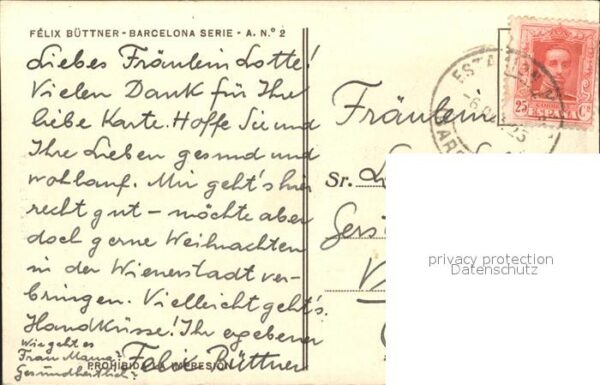 FÉLIX BÜTTNER - BARCELONA SERIE - A. N.º 2
Liebes Fräulein Lotte!
Vielen Dank für Ihre
liebe Karte. Hoffe Sie und
Ihre Lieben gesund und
wohlauf. Mir geht's hier
recht gut - möchte aber
doch gerne Weihnachten
in der Wienerstadt ver-
bringen. Vielleicht geht's.
Handküsse! Ihr ergebener
Felix Büttner
Wie geht es
Frau Mama?
Gesundheitlich?
PROHIBIDA LA IMPRESION
Fräulein
Sr.
25 Cs
ESPAÑA
privacy protection
Datenschutz